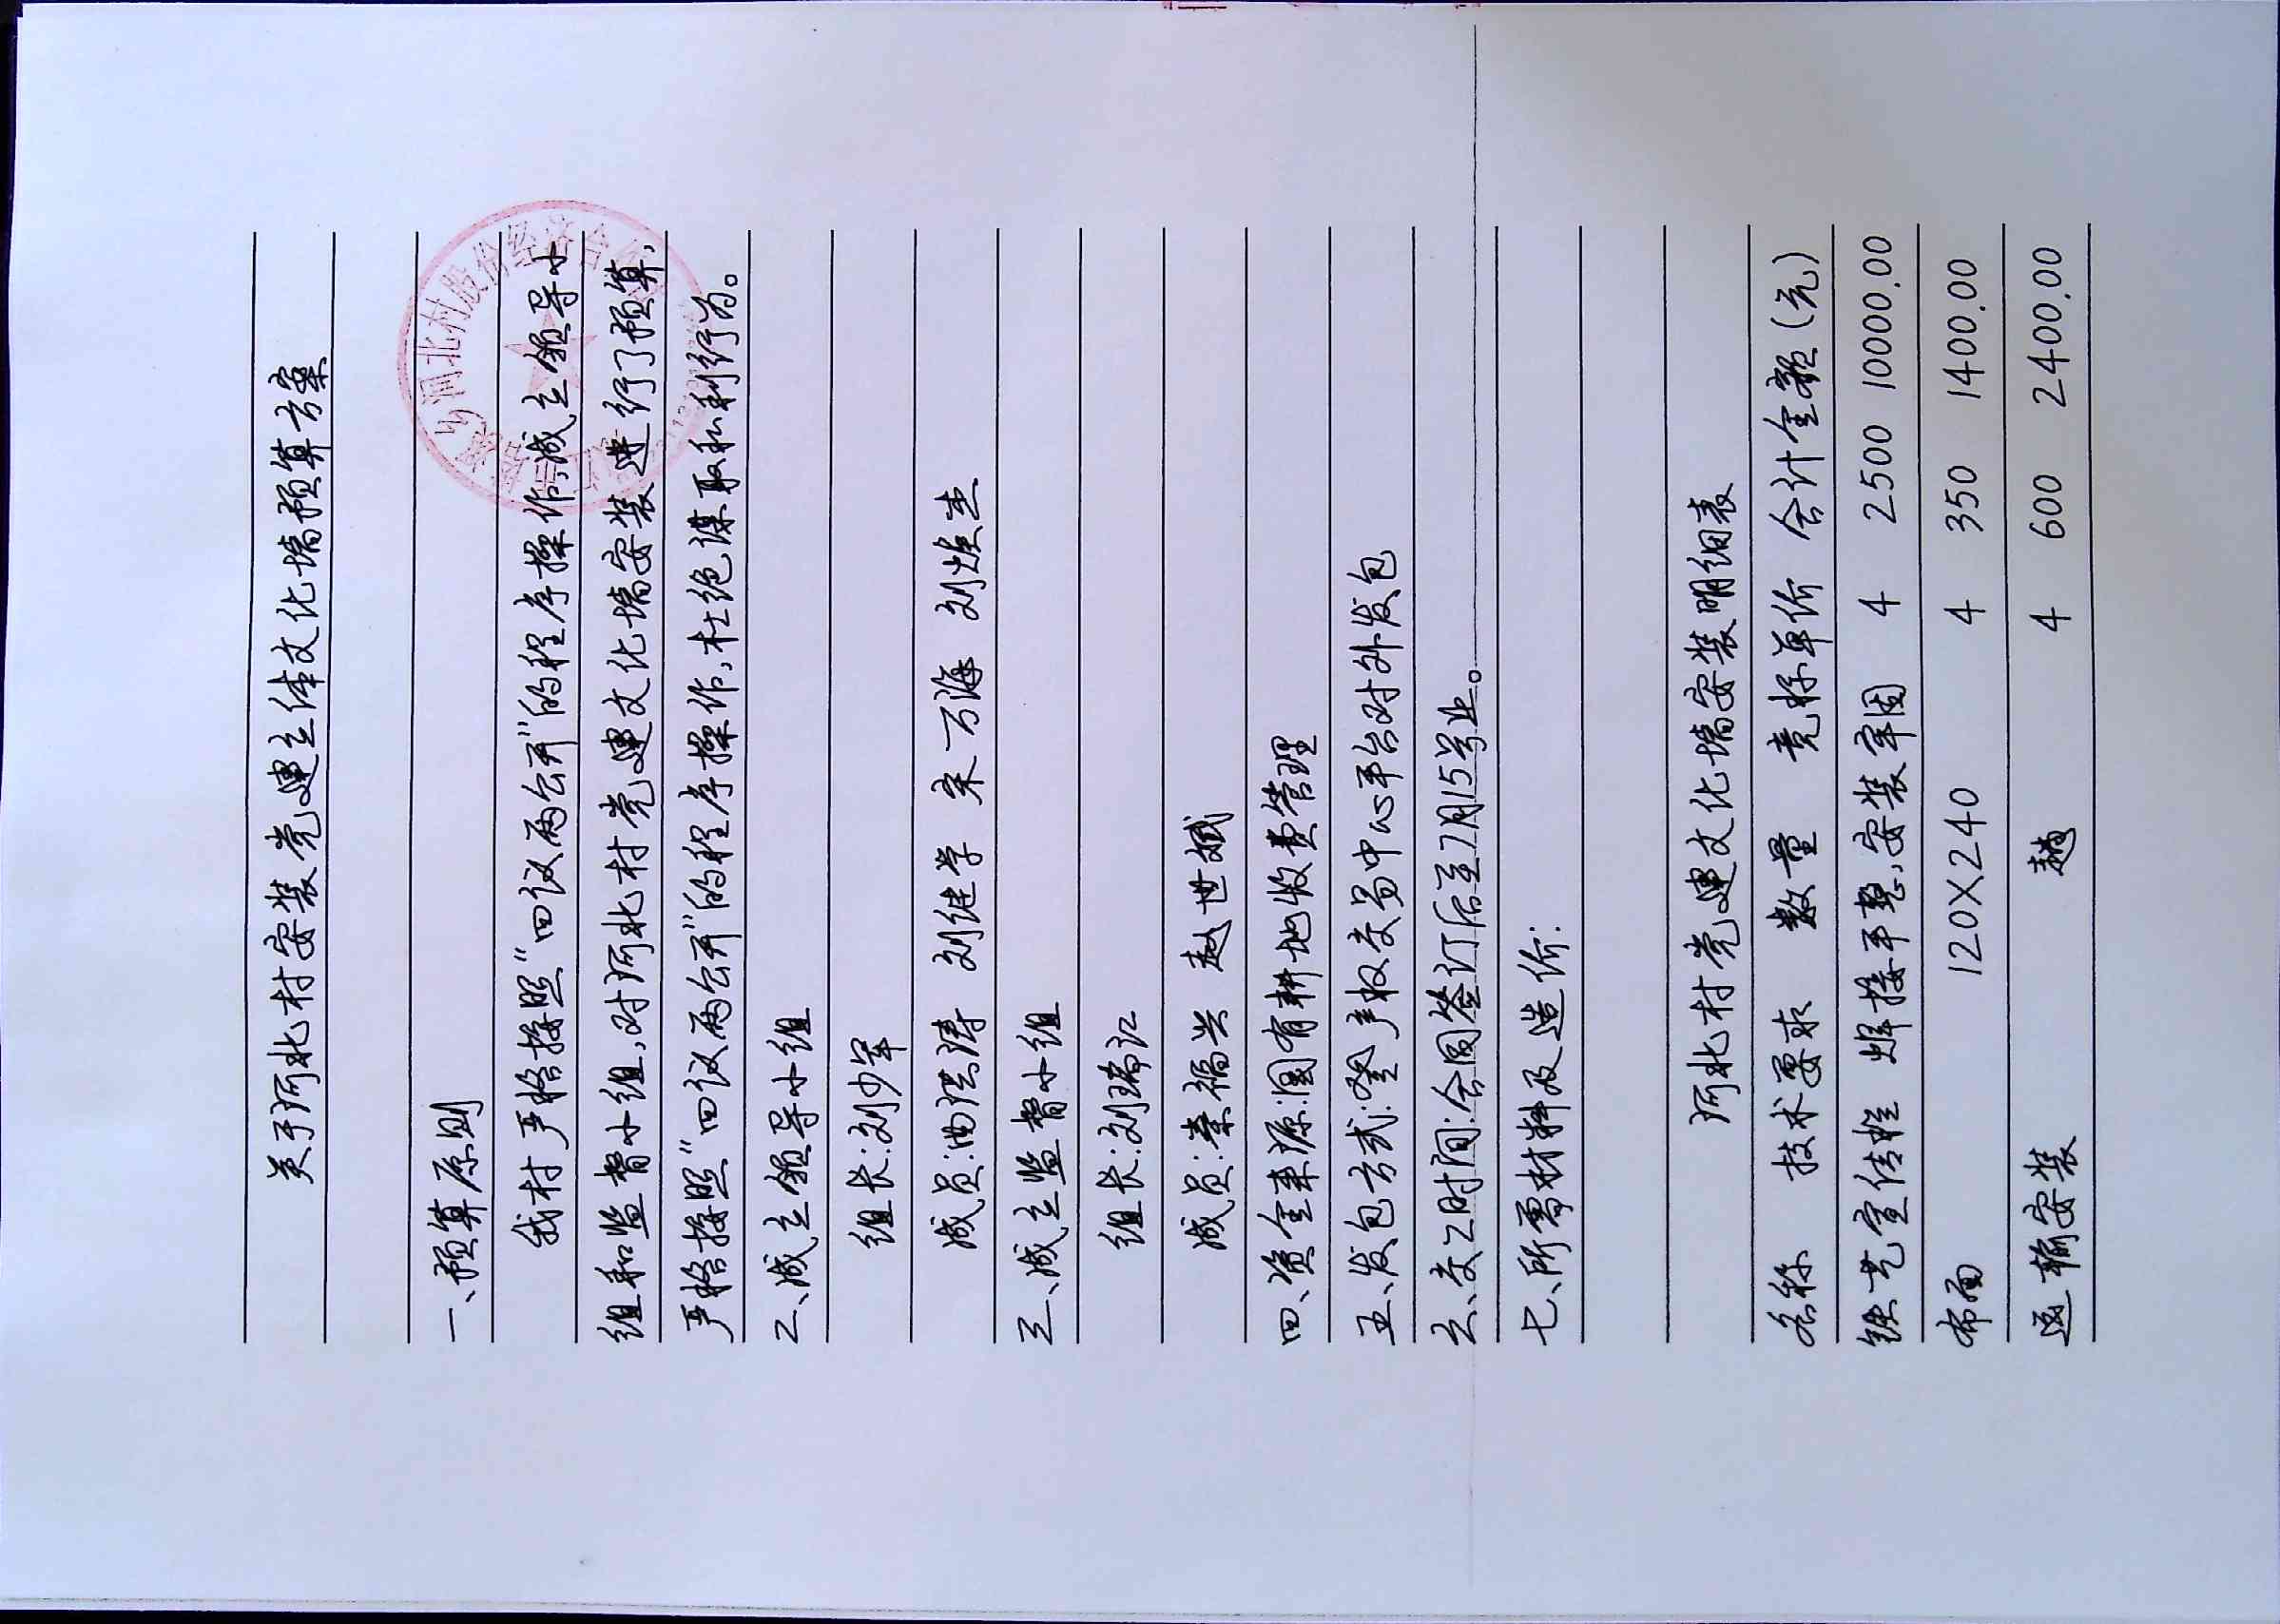 关于河北村安装党建立体文化墙预算方案
一、预算原则
我村严格按照"四议两公开"的程序操作,成立领导小
组和监督小组,对河北村党建文化墙安装进行了预算,
严格按照"四议两公开"的程序操作,杜绝谋取私利行为。
二、成立领导小组
组长:刘少军
成员:曲洪涛 刘继学 宋万海 刘焕杰
三、成立监督小组
组长:刘瑞江
成员:秦福兴 赵世斌
四、资金来源:国有耕地收费管理
五、发包方式:产权交易中心平台对外发包
六、交工时间:合同签订后至7月15号止。
七、所需材料及造价:
河北村党建文化墙安装明细表
名称 技术要求 数量 竞标单价 合计金额(元)
铁艺宣传栏 焊接平整,安装牢固 4 2500 10000.00
布面 120X240 4 350 1400.00
运输安装 趟 4 600 2400.00
河北村股份经济合作